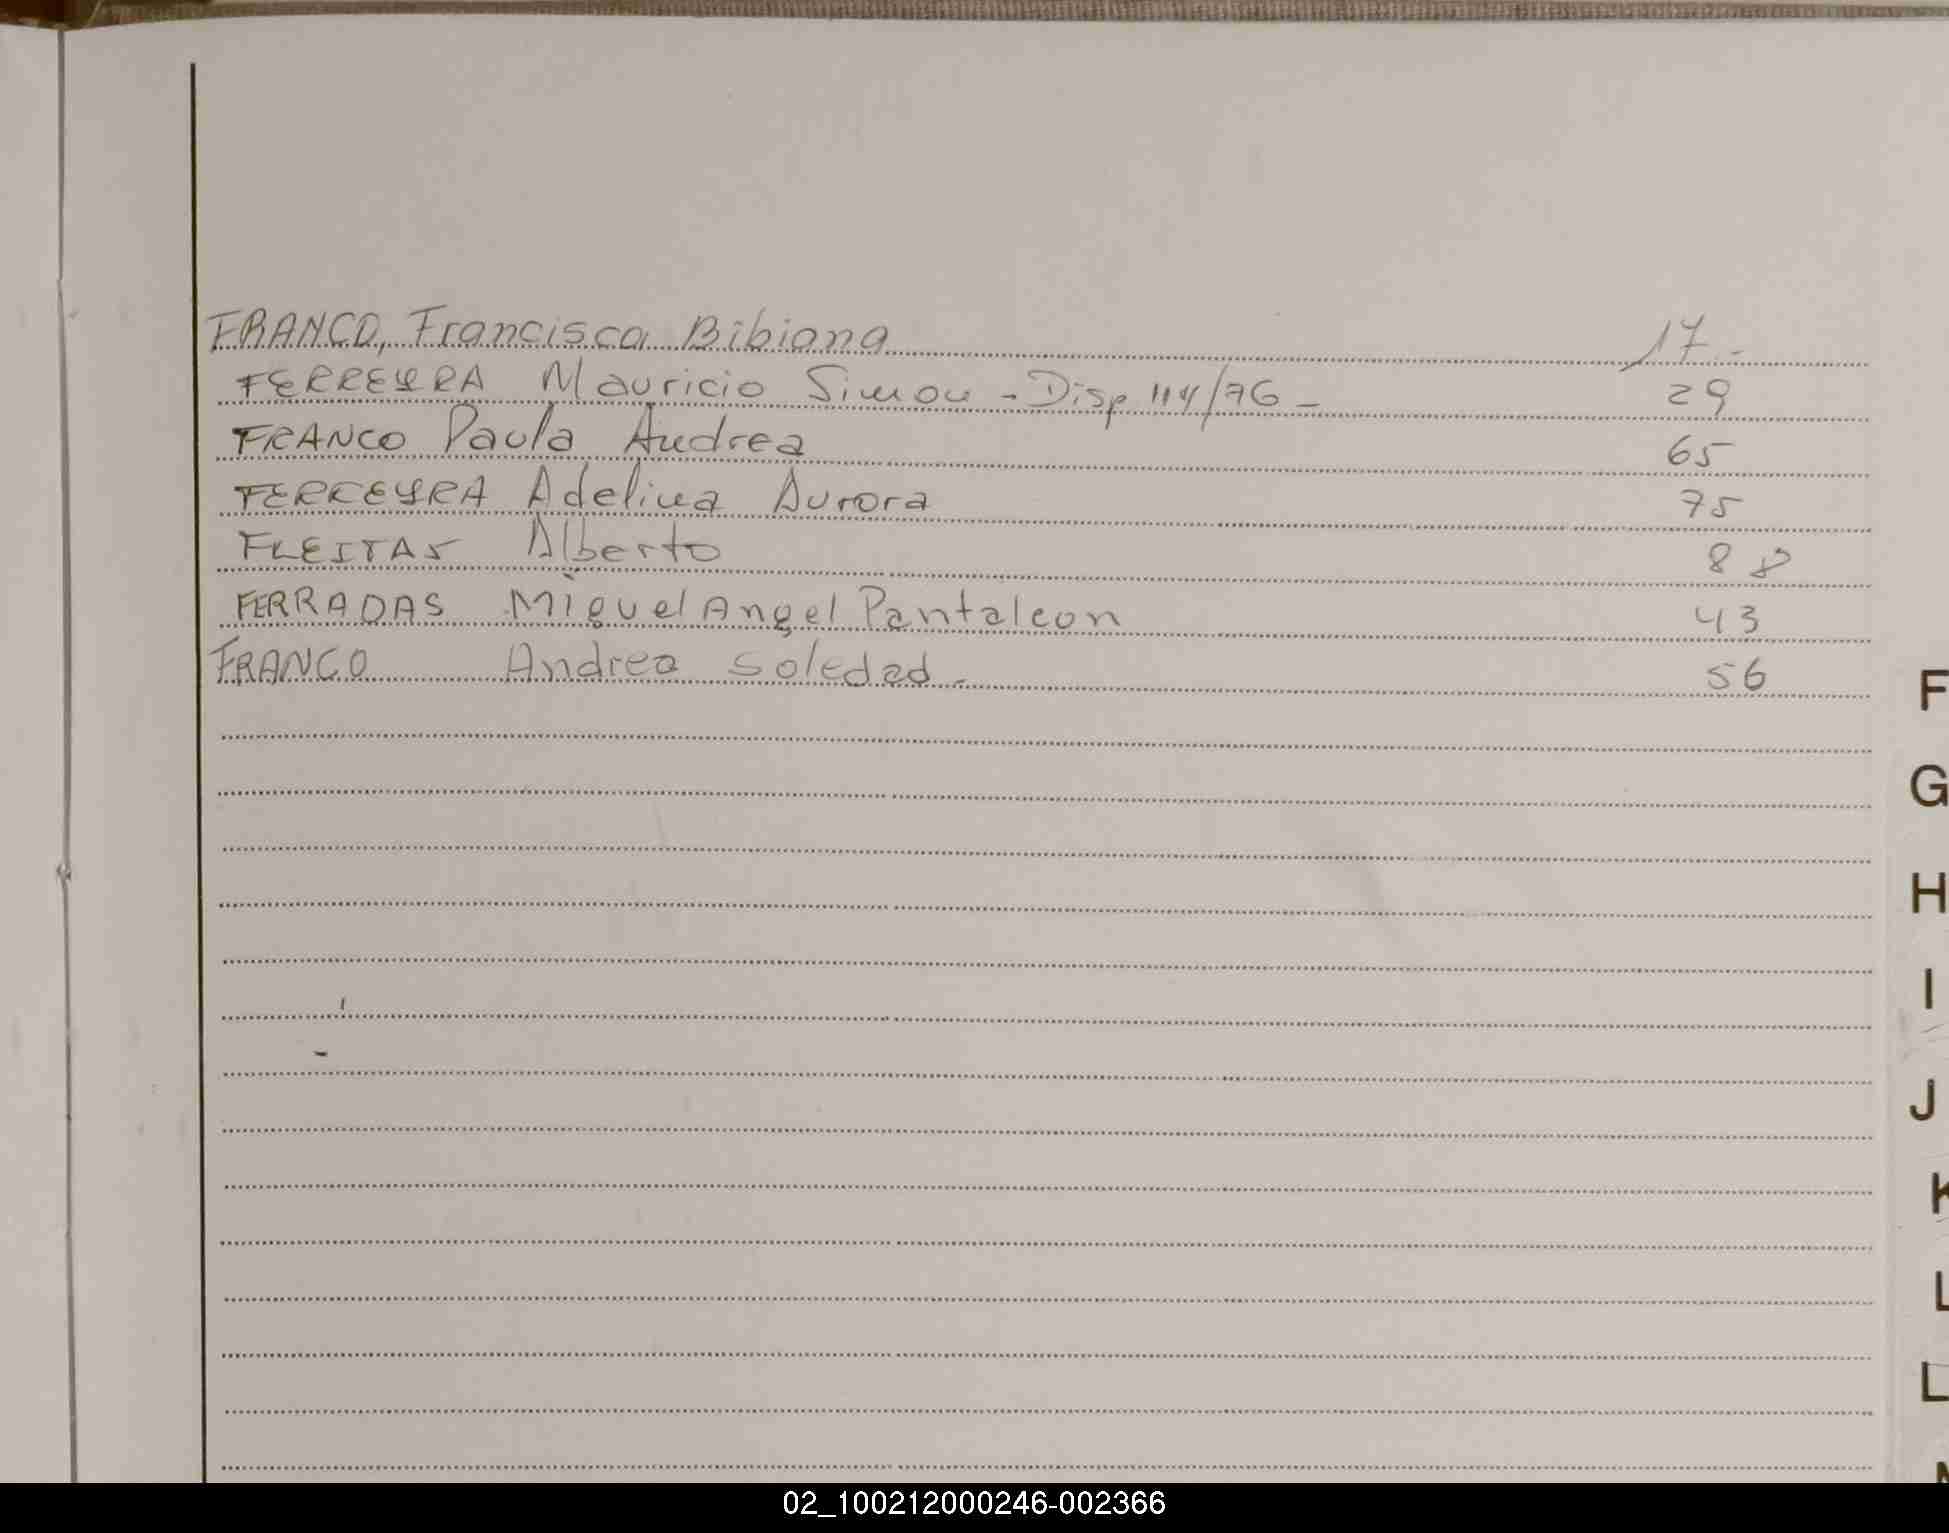 FRANCO, Francisca Bibiana 17 -
FERREYRA Mauricio Simon - Disp 114/76 - 29
FRANCO Paula Andrea 65
FERREYRA Adelina Aurora 75
FLEITAS Alberto 88
FERRADAS Miguel Angel Pantaleon 43
FRANCO Andrea Soledad - 56
F
G
H
I
J
K
L
L
02_100212000246-002366